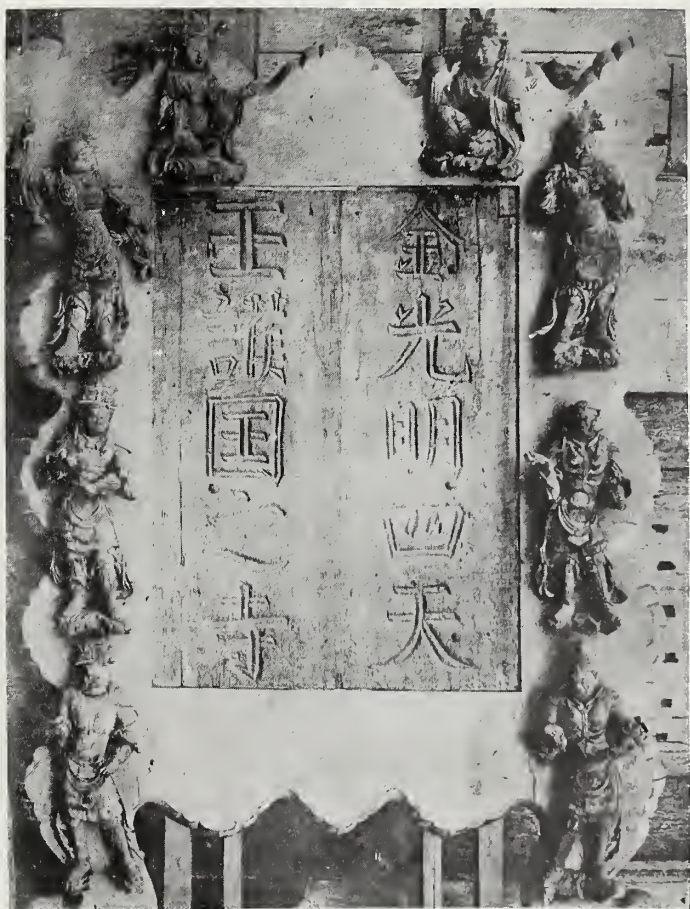 金光明四天
王護国之寺